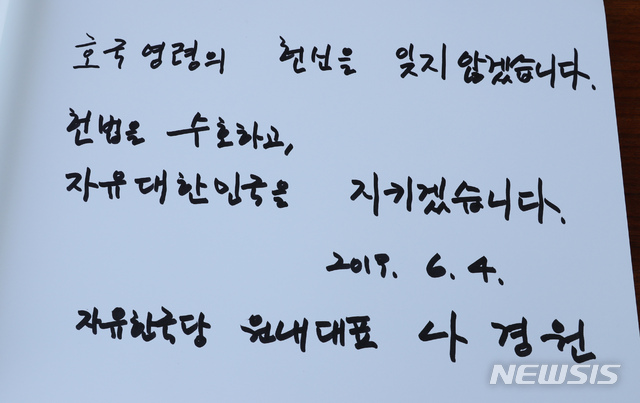 호국영령의 헌신을 잊지 않겠습니다.
헌법을 수호하고,
자유대한민국을 지키겠습니다.
2019. 6. 4.
자유한국당 원내대표 나경원
NEWSIS